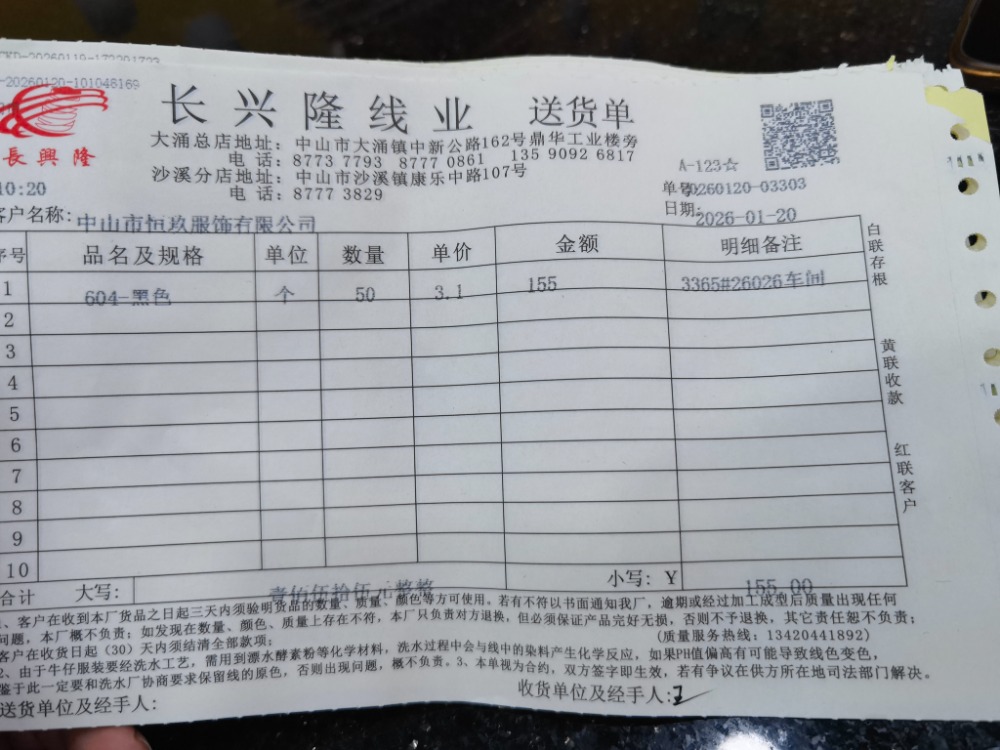 -20260120-101048169
長興隆
长兴隆线业 送货单
大涌总店地址：中山市大涌镇中新公路162号鼎华工业楼旁
电话：8773 7793 8777 0861 135 9092 6817
沙溪分店地址：中山市沙溪镇康乐中路107号
电话：8777 3829
A-123☆
10:20
单号 0260120-03303
日期: 2026-01-20
客户名称: 中山市恒玖服饰有限公司
序号 品名及规格 单位 数量 单价 金额 明细备注
1 604-黑色 个 50 3.1 155 3365#26026车间
2
3
4
5
6
7
8
9
10
合计 大写: 壹佰伍拾伍元整 小写: ￥ 155.00
白联存根
黄联收款
红联客户
、客户在收到本厂货品之日起三天内须验明货品的数量、质量、颜色等方可使用，若有不符以书面通知我厂，逾期或经过加工成型后质量出现任何
问题，本厂概不负责；如发现在数量、颜色、质量上存在不符，本厂只负责对方退换，但必须保证产品完好无损，否则不予退换，其它责任恕不负责；
客户在收货日起（30）天内须结清全部款项； （质量服务热线：13420441892）
2、由于牛仔服装要经洗水工艺，需用到漂水酵素粉等化学材料，洗水过程中会与线中的染料产生化学反应，如果PH值偏高有可能导致线色变色，
鉴于此一定要和洗水厂协商要求保留线的原色，否则出现问题，概不负责。3、本单视为合约，双方签字即生效，若有争议在供方所在地司法部门解决。
送货单位及经手人: 收货单位及经手人: